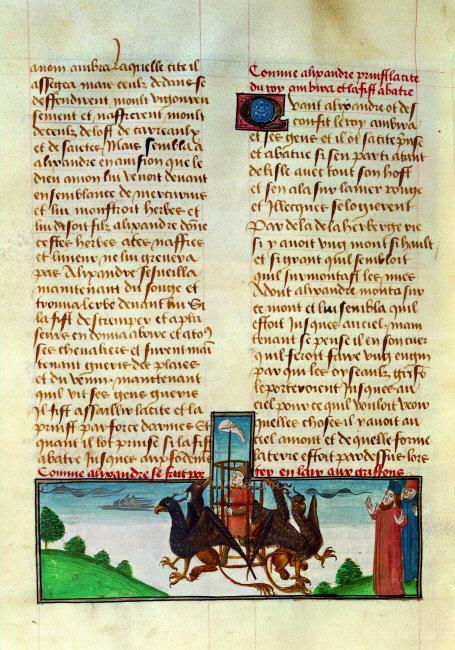 anom ambra. Laquelle cite il
assegea mais ceulz dedans se
deffendirent moult vigoureu
sement et naffrerent moult
deceulz de lost de carreaulx
et de saictes Mais sembla a
alixandre en aunsion que le
dieu amon lui venoit devant
en semblance de mercurius
et lui monstroit herbes et
lui disoit filz alixandre done
cestes herbes ates naffres
et lunieur ne lui grevera
pas Alixandre sesveilla
maintenant du songe et
trouva lerbe devant lui Si
la fist destremper et a plu
seurs en donna aboire et a to9
ses chevaliers et furent main
tenant gueris des plaies
et du venin. maintenant
quil vit ses gens gueris
Il fist assaillir la cite et la
prinst par force darmes Et
quant il lot prinse si la fist
abatre Jusques aux fondemē
Comme alixandre se fait por
Comme alixandre prinst la cite
du roy ambira et la fist abatre
Quant alixandre ot des
confit le roy ambira
et ses gens et il ot sa cite prise
et abatue si sen parti atant
de lisle avec tout son host
et sen ala sur la mer rouge
et Illecques se logierent
Par de la de la herberge vie
si y avoit vng mont si hault
et si grant quil sembloit
quil surmontast les nues
Adont alixandre monta sur
ce mont et lui sembla quil
estoit Jusques au ciel. main
tenant se pensa il en son cuer
quil feroit faire vng engin
par quoy les oyseaulx grifs
le porteroient Jusques au
ciel pour ce quil vouloit veoir
quelles choses il y avoit au
ciel amont et de quelle forme
la terre estoit par dessus lors
ter en lair aux griffons